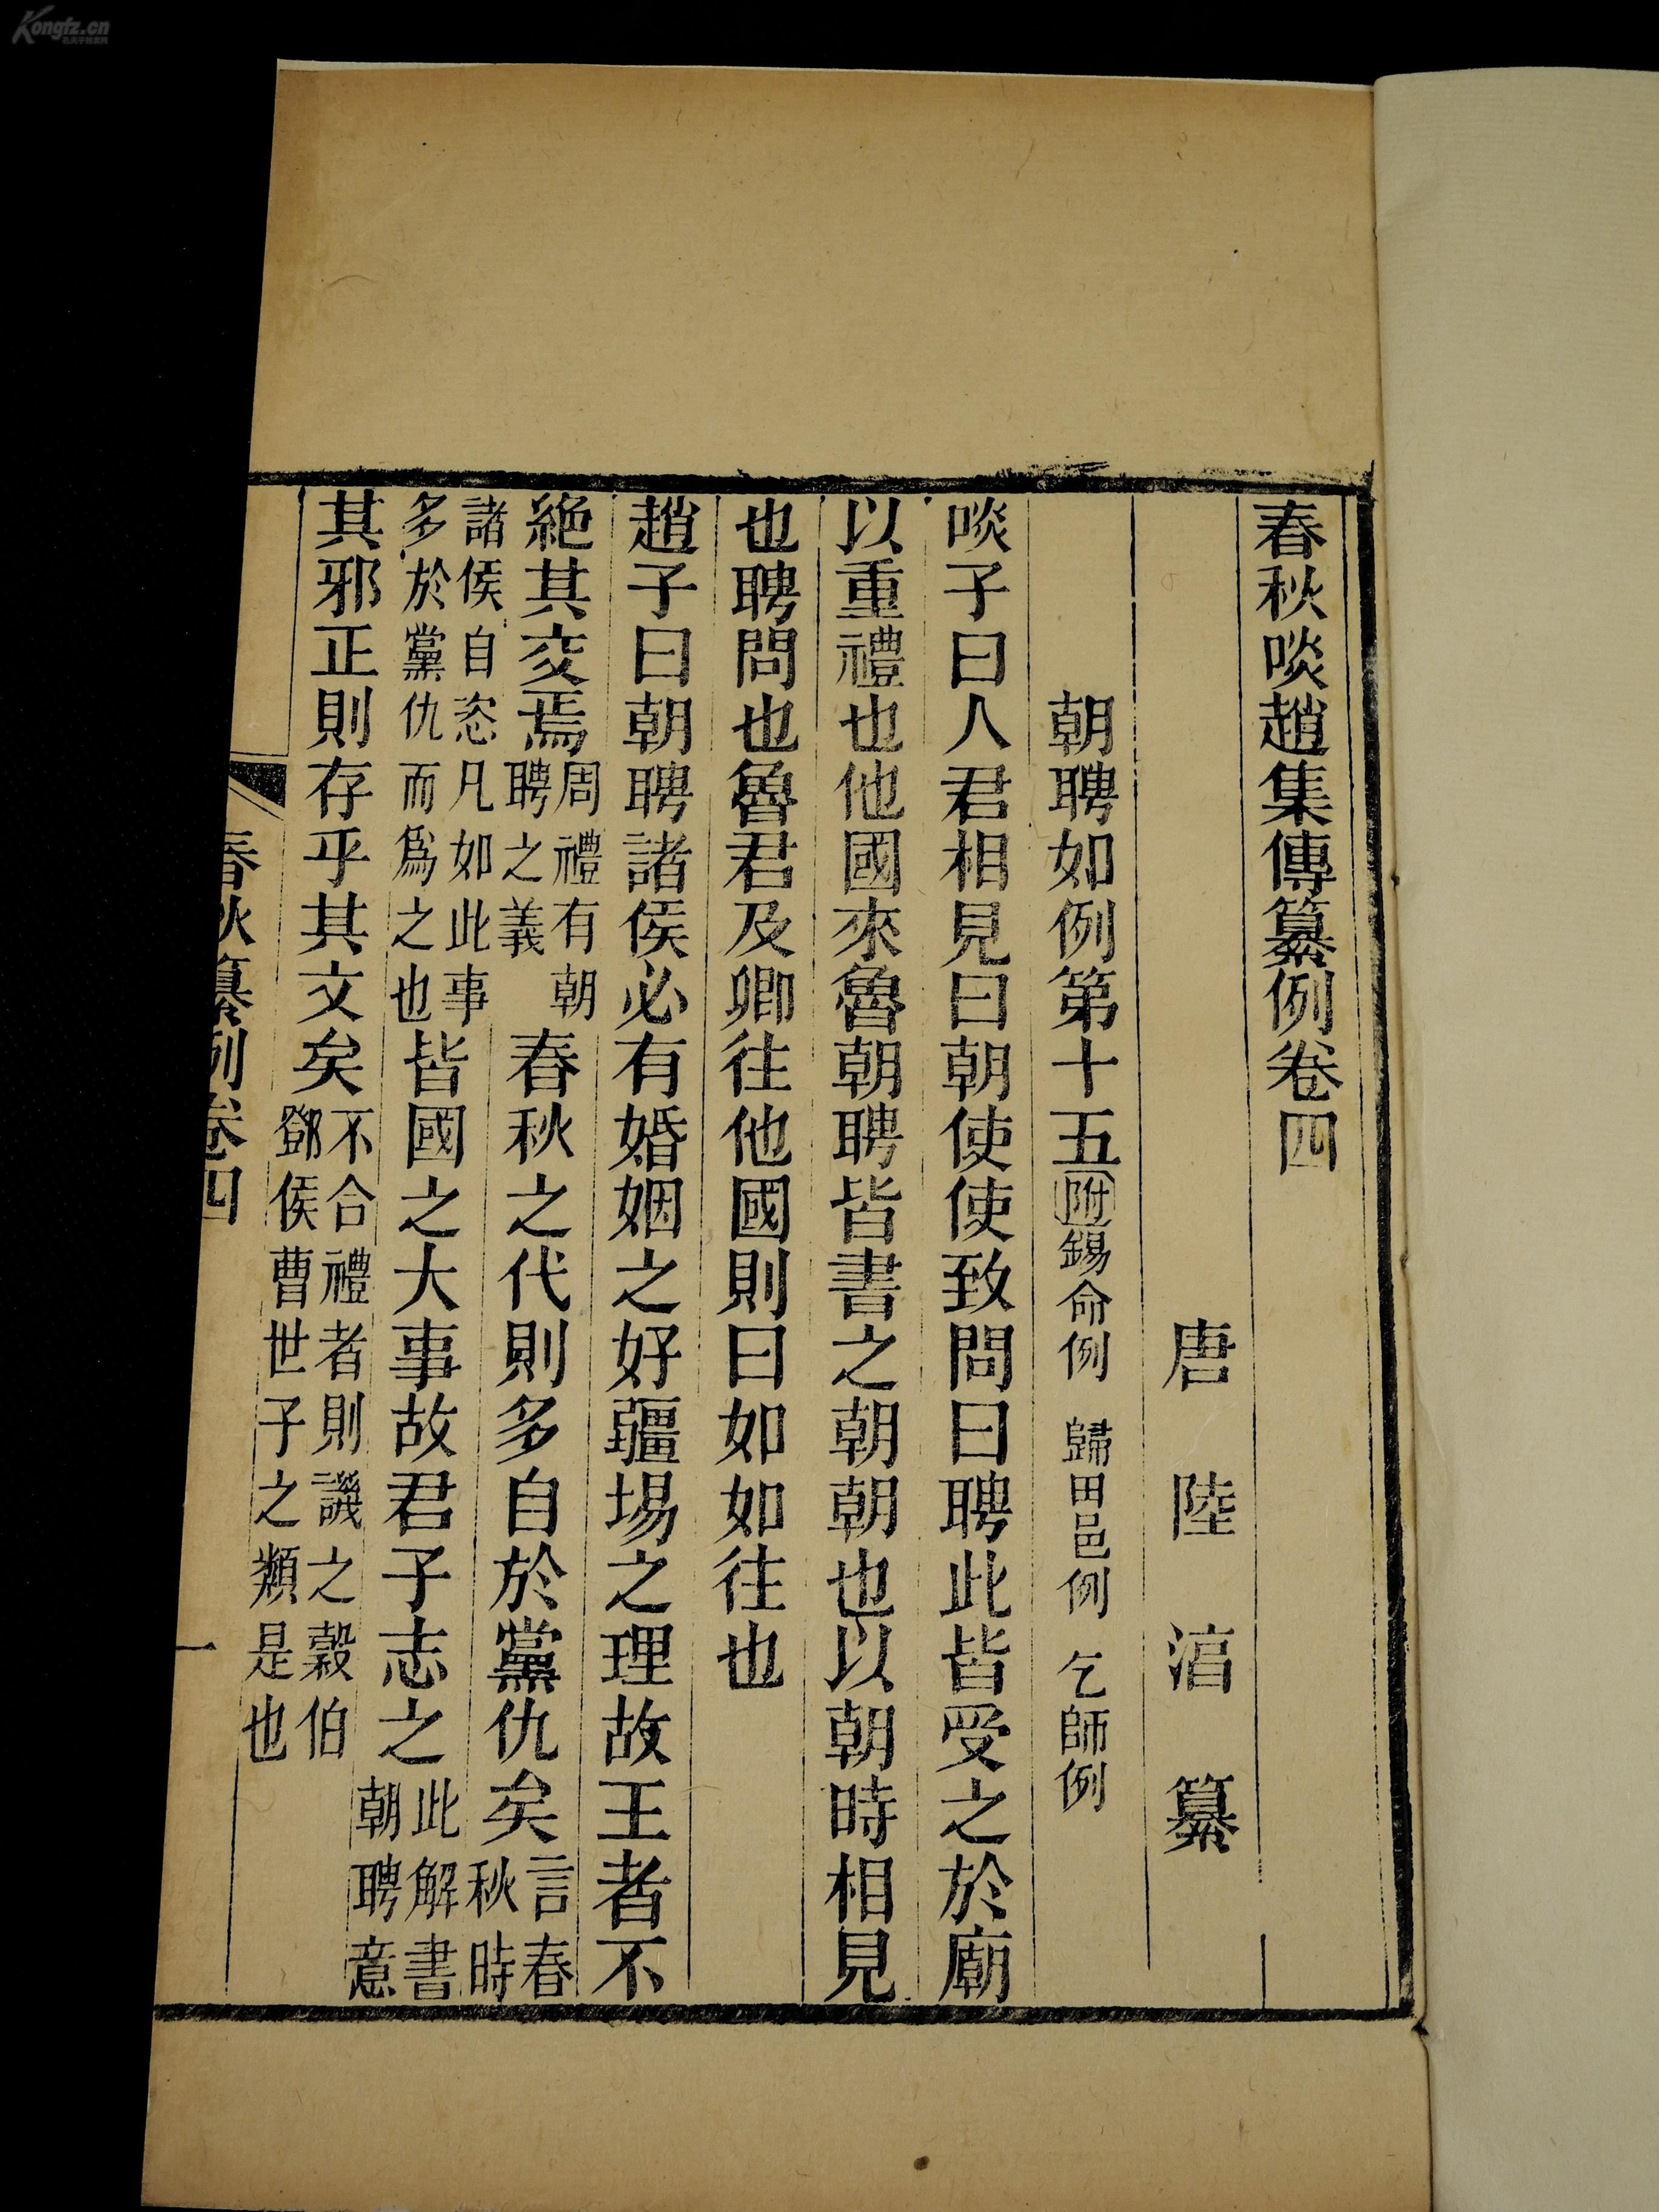 春秋啖趙集傳纂例卷四
唐 陸 淳 纂
朝聘如例第十五附錫命例 歸田邑例 乞師例
啖子曰人君相見曰朝使使致問曰聘此皆受之於廟
以重禮也他國來魯朝聘皆書之朝朝也以朝時相見
也聘問也魯君及卿往他國則曰如如往也
趙子曰朝聘諸侯必有婚姻之好疆埸之理故王者不
絶其交焉周禮有朝聘之義春秋之代則多自於黨仇矣言春秋時
諸侯自恣凡如此事多於黨仇而爲之也皆國之大事故君子志之此解書朝聘意
其邪正則存乎其文矣不合禮者則譏之穀伯鄧侯曹世子之類是也
春秋纂例卷四
一
Kongfz.cn